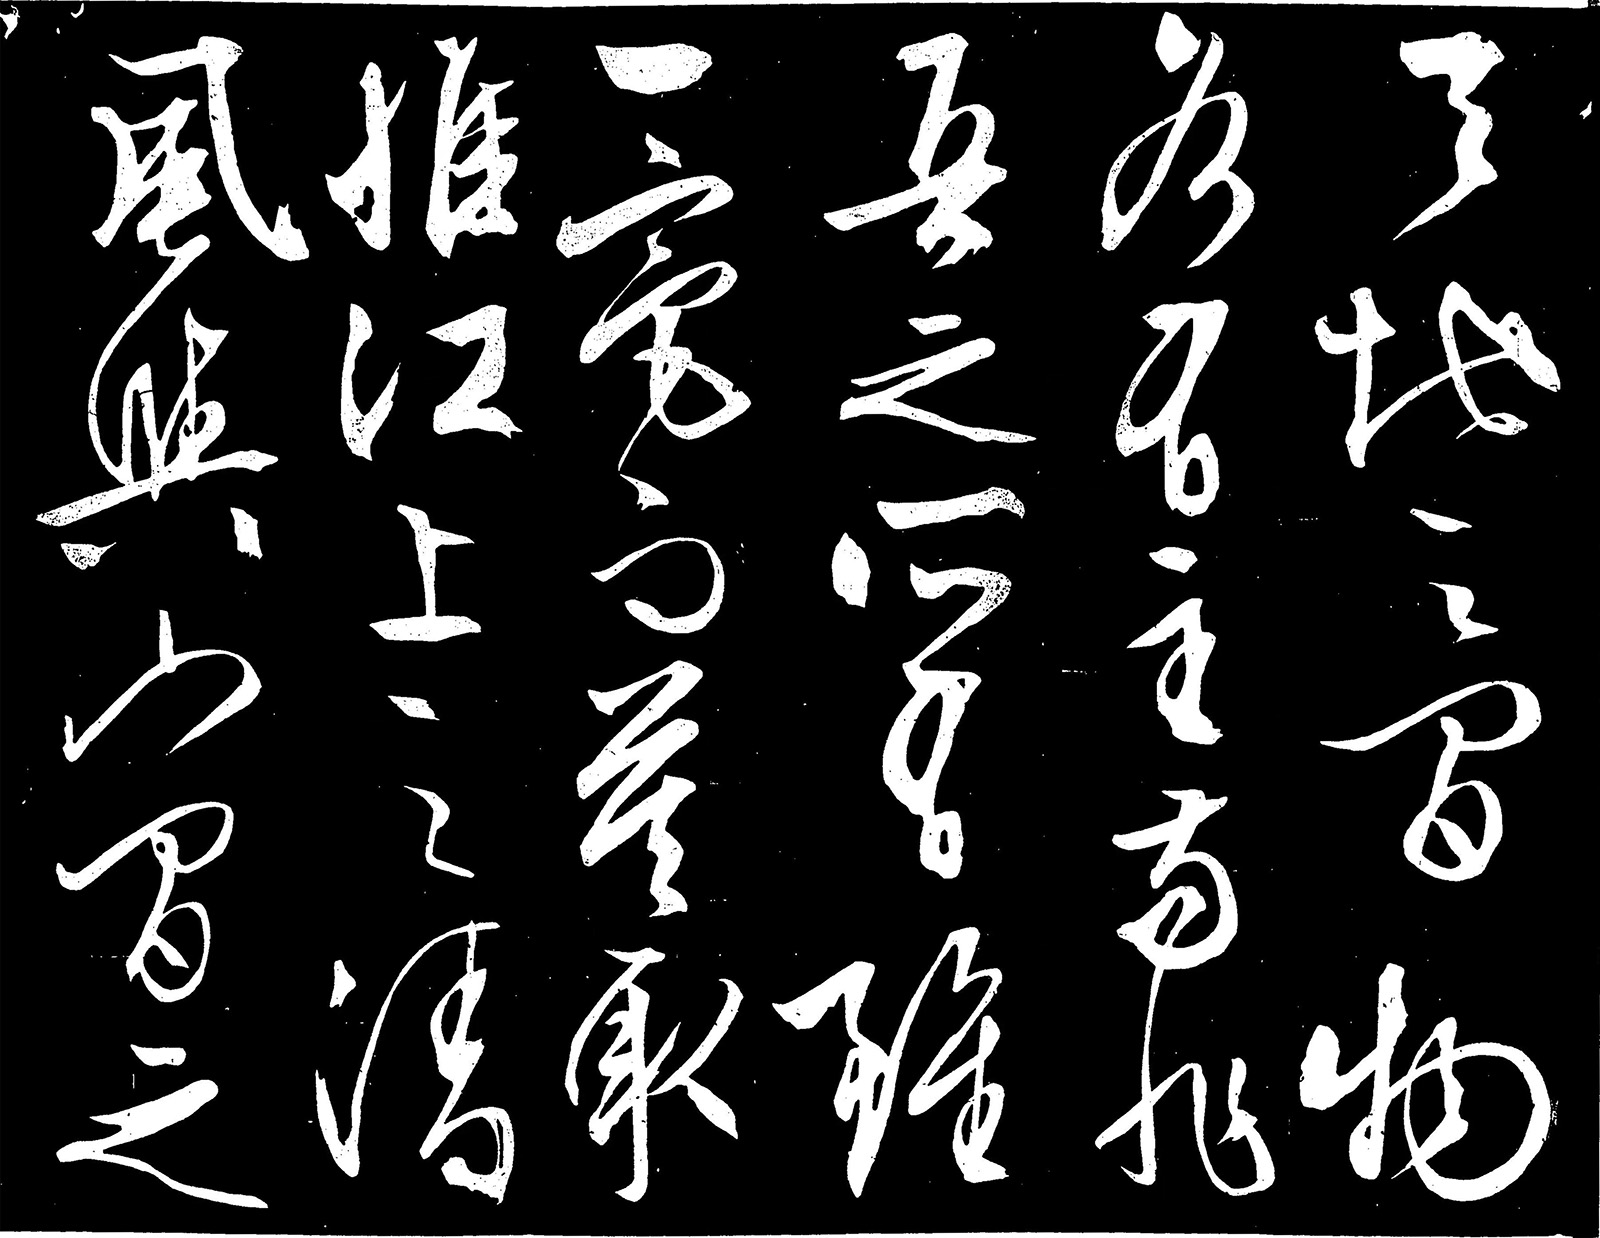 天地之間物
各有主苟非
吾之所有雖
一毫而莫取
惟江上之清
風與山間之